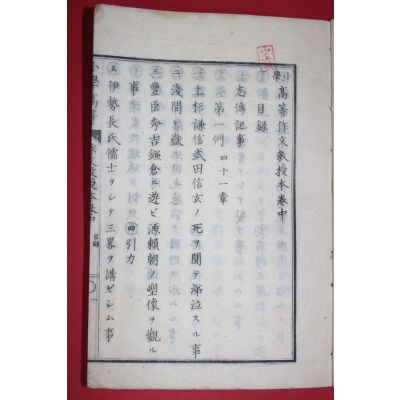 小學高等作文教授本卷中
目録
志傳記事
第一例 四十一章
㊀上杉謙信武田信玄ノ死ヲ聞テ涕泣スル事
㊁淺間ノ嶽
㊂豐臣秀吉鎌倉ニ遊ビ源頼朝ノ塑像ヲ觀ル
事 ㊃引力
㊄伊勢長氏儒士ヲシテ三畧ヲ講ゼシム事
小學高等作文教授本卷中 目録